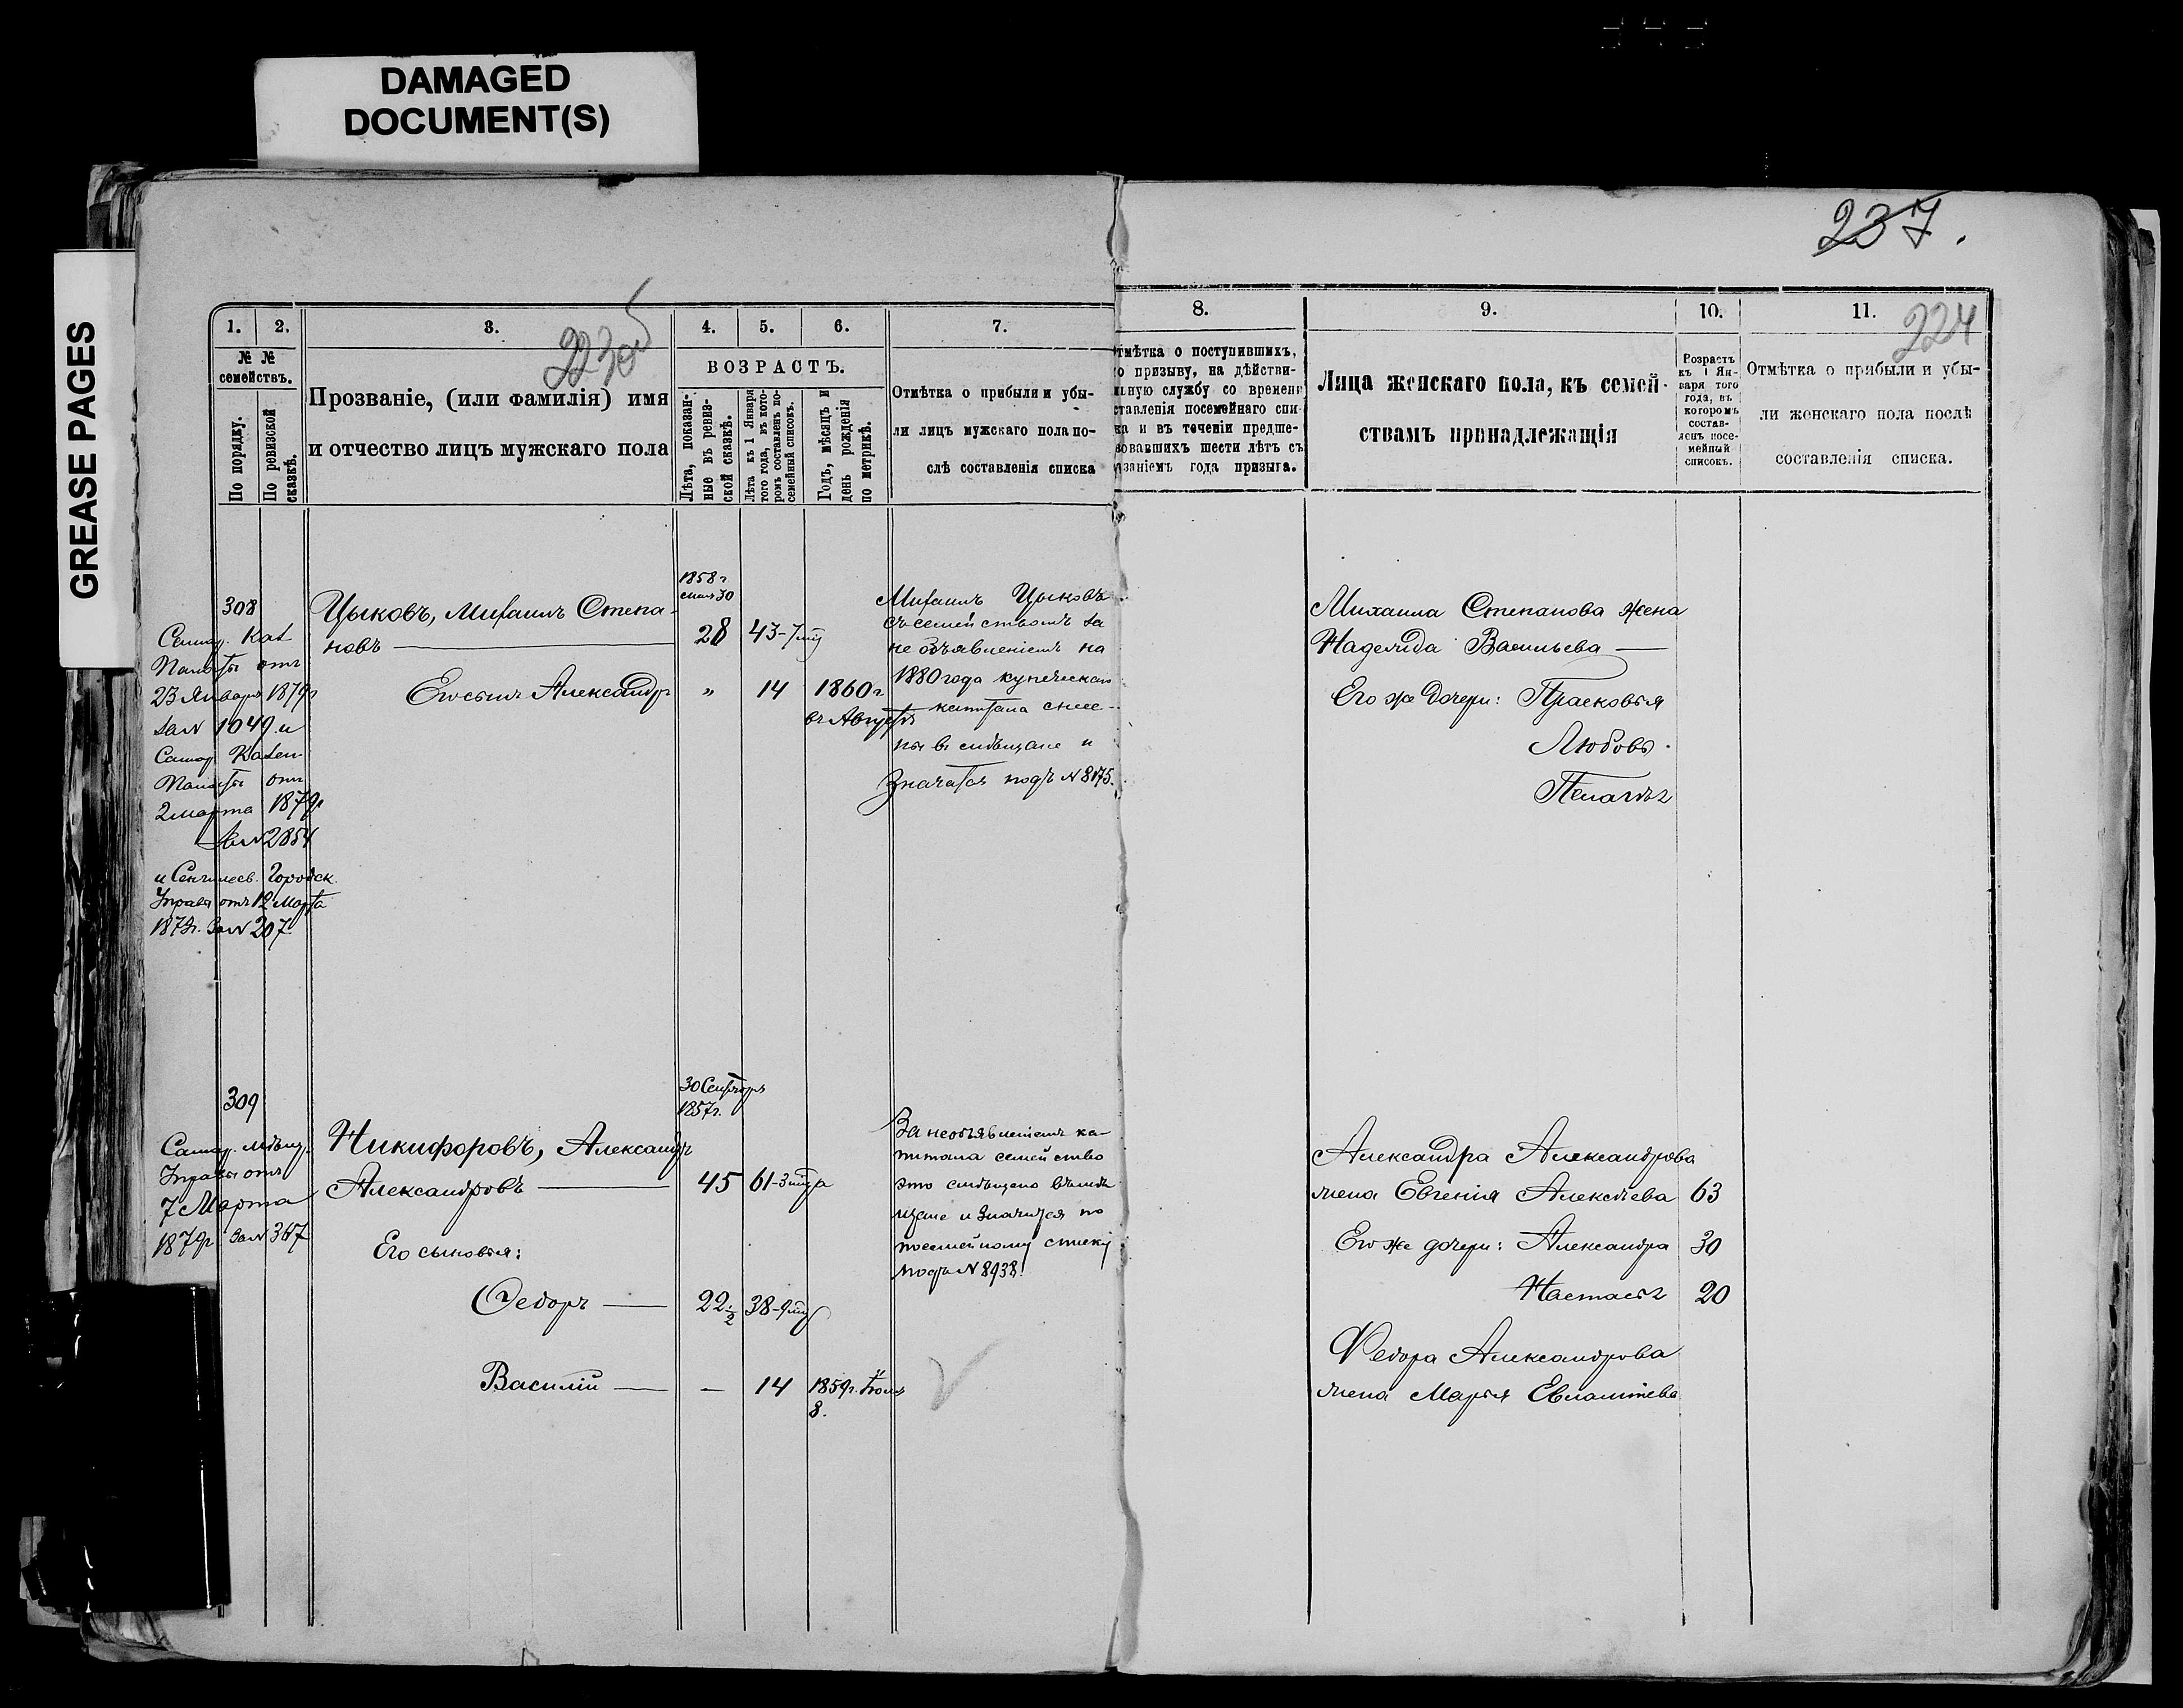 DAMAGED
DOCUMENT(S)
GREASE PAGES
237.
223об
224
1. 2. 3. 4. 5. 6. 7.
№ №
семействъ.
По порядку.
По ревизской
сказкѣ.
Прозваніе, (или фамилія) имя
и отчество лицъ мужскаго пола
ВОЗРАСТЪ.
Лѣта, показан-
ные въ ревиз-
ской сказкѣ.
Лѣта къ 1 Января
того года, въ кото-
ромъ составленъ по-
семейный списокъ.
Годъ, мѣсяцъ и
день рожденія
по метрикѣ.
Отмѣтка о прибыли и убы-
ли лицъ мужскаго пола по-
слѣ составленія списка
308
Цыковъ, Михаилъ Степа-
новъ
1858 г
28
43-7
Его сынъ Александръ
„
14
1860 г
въ Августѣ
Палаты отъ
23 Января 1879г
за № 1049 и
Палаты отъ
2 марта 1879г
за № 2854
и Сенгилеев. Городск.
Управы отъ 12 Марта
1879г. За № 207.
Михаилъ Цыковъ
съ семействомъ за
не объявленіемъ на
1880 года купеческаго
капитала
въ мѣщане и
Значатся подъ № 8175.
309
Самар. мѣщ.
Управы отъ
7 Марта
1879г За № 367
Никифоровъ, Александръ
Александровъ
30 Сентября
1857г.
45
61-3
Его сыновья:
Федоръ
22 1/2
38-9
Василій — — 14 1859г. Іюля
8.
За необъявленіемъ ка-
питала семейство
это
щане и Значится по
посемейному списку
подъ № 8938.
8. 9. 10. 11.
тмѣтка о поступившихъ,
о призыву, на дѣйстви-
льную службу со времени
ставленія посемейнаго спи-
ка и въ теченіи предше-
вовавшихъ шести лѣтъ съ
азаніемъ года призыва.
Лица женскаго пола, къ семей-
ствамъ принадлежащія
Возрастъ
къ 1 Ян-
варя того
года, въ
которомъ
состав-
ленъ посе-
мейный
списокъ.
Отмѣтка о прибыли и убы-
ли женскаго пола послѣ
составленія списка.
Михаила Степанова жена
Надежда Васильева
Его же дочери: Прасковья
Любовь.
Пелагѣя
Александра Александрова
жена Евгенія Алексѣева 63
Его же дочери: Александра 30
Настасья 20
Федора Александрова
жена Марья Евлампіева